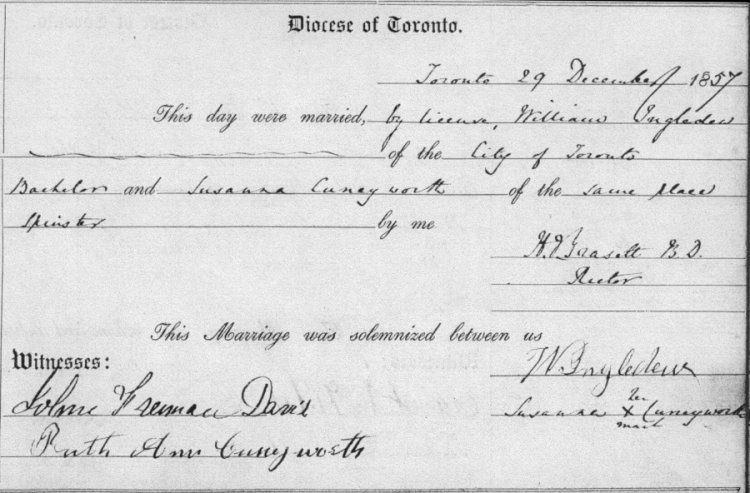 Diocese of Toronto.
Toronto 29 December 1857
This day were married, by license, William Ingledew
of the City of Toronto
Bachelor and Susanna Cuneyworth of the same place
Spinster by me
H. J. Grasett B.D.
Rector
This Marriage was solemnized between us
Witnesses:
W Ingledew
John Freeman Davis
Susanna her X mark Cuneyworth
Ruth Ann Cuneyworth